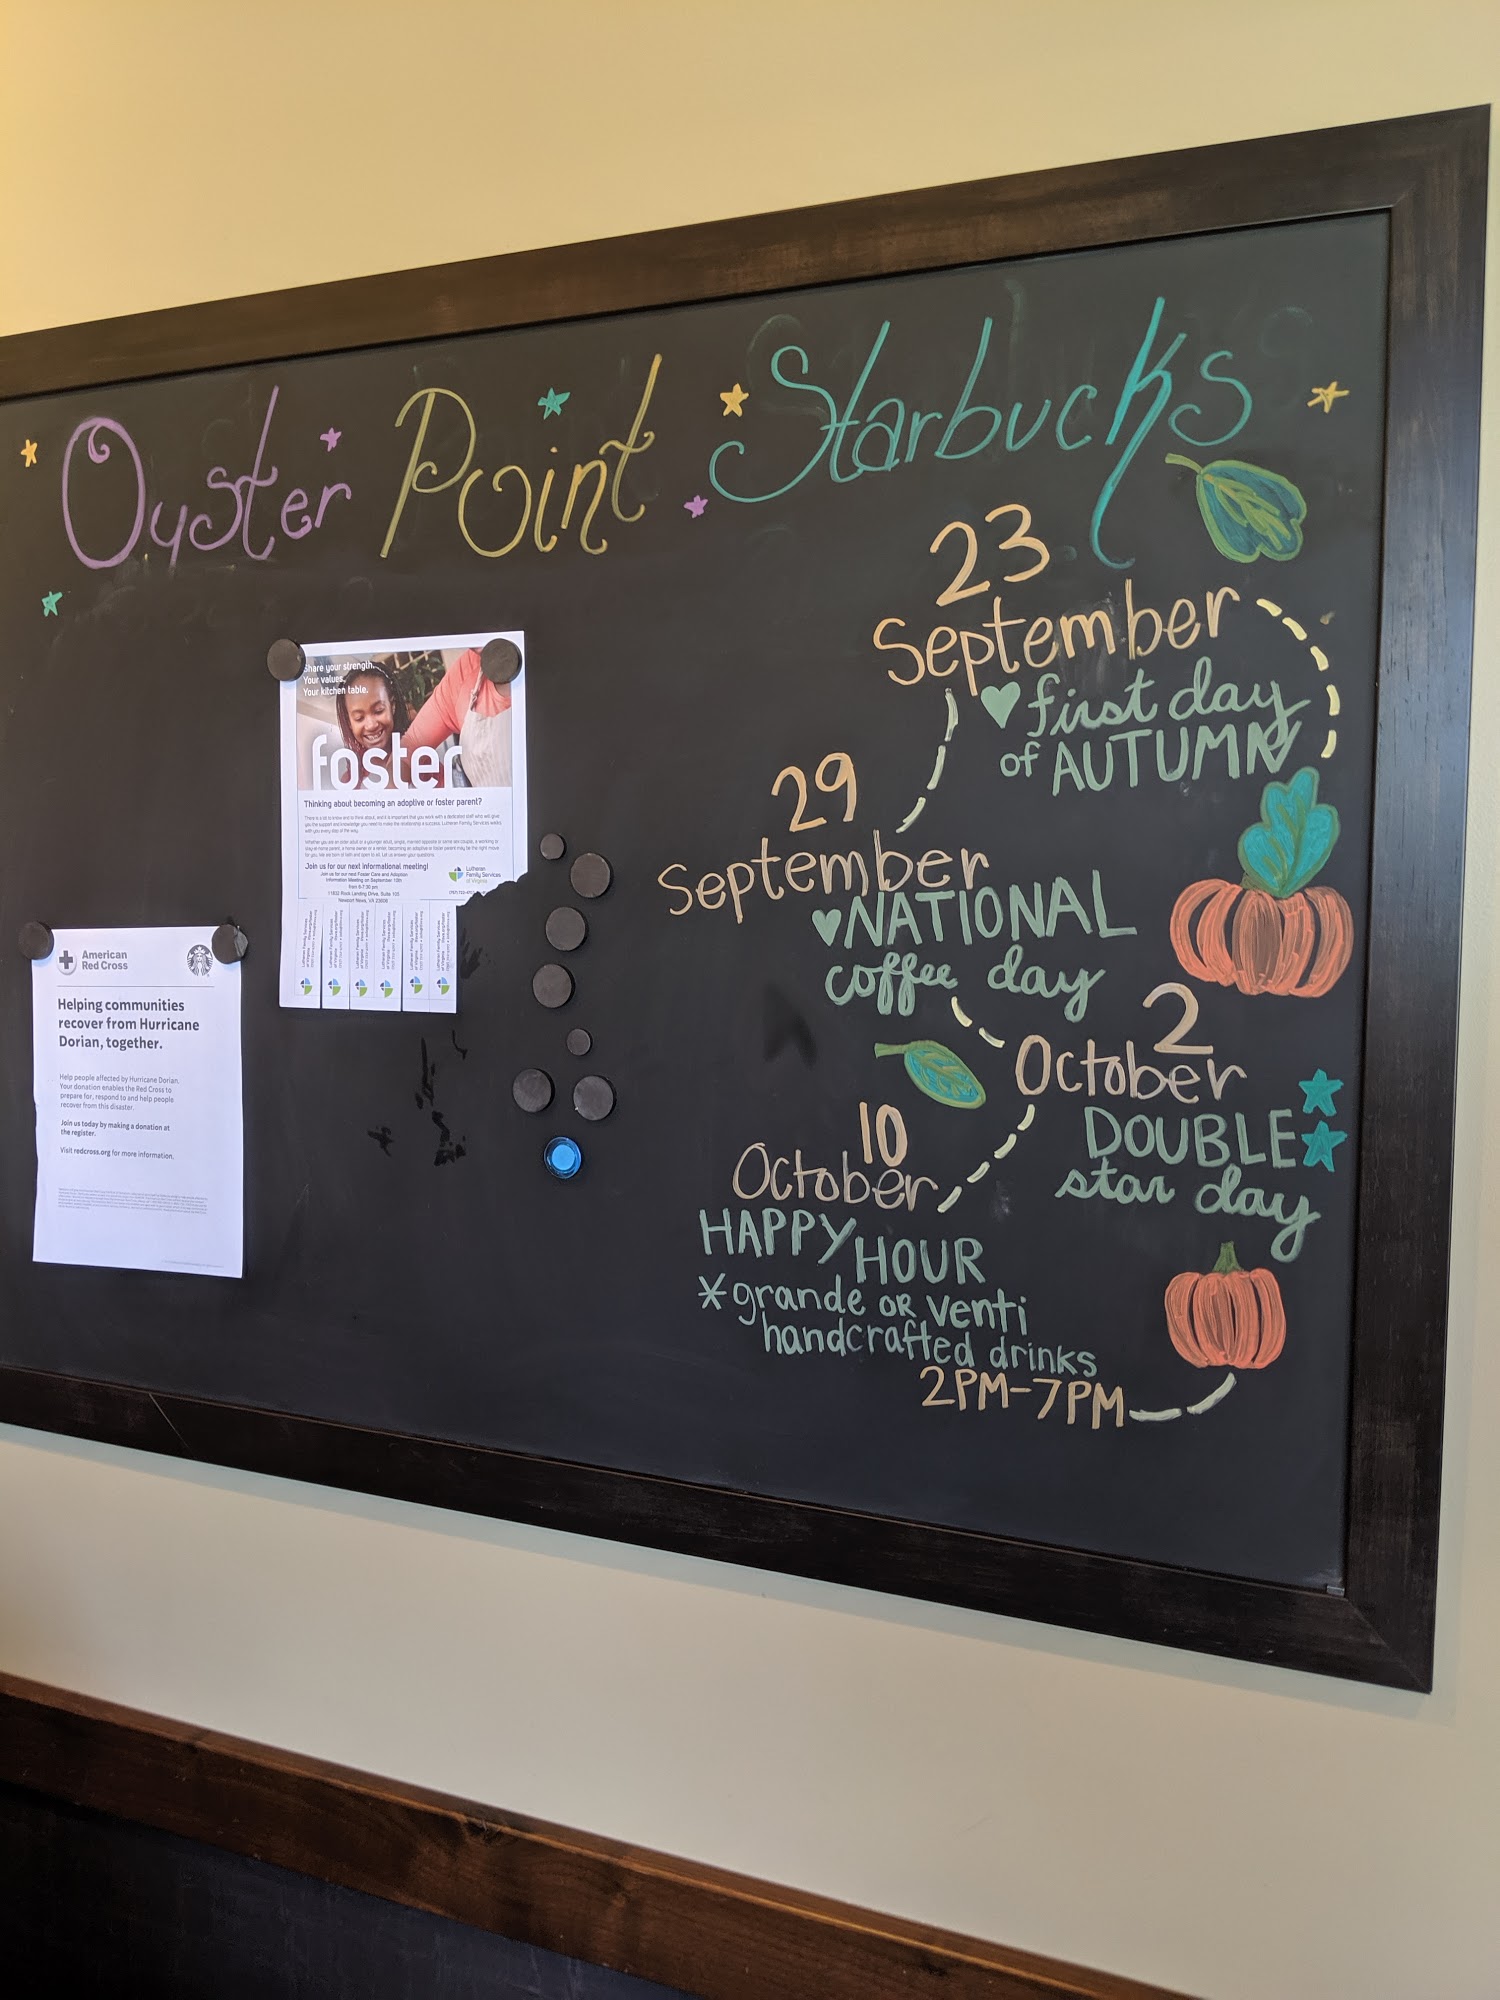 Oyster Point Starbucks
23
September
first day
of AUTUMN
29
September
NATIONAL
coffee day
2
October
DOUBLE
star day
10
October
HAPPY HOUR
*grande OR venti
handcrafted drinks
2PM-7PM
Share your strength.
Your values.
Your kitchen table.
foster
Thinking about becoming an adoptive or foster parent?
Join us for our next informational meeting!
Join us for our next Foster Care and Adoption
Information Meeting on September 10th
from 6-7:30 pm
11832 Rock Landing Drive, Suite 105
Newport News, VA 23606
Lutheran
Family Services
of Virginia
American
Red Cross
Helping communities
recover from Hurricane
Dorian, together.
Help people affected by Hurricane Dorian.
Your donation enables the Red Cross to
prepare for, respond to and help people
recover from this disaster.
Join us today by making a donation at
the register.
Visit redcross.org for more information.